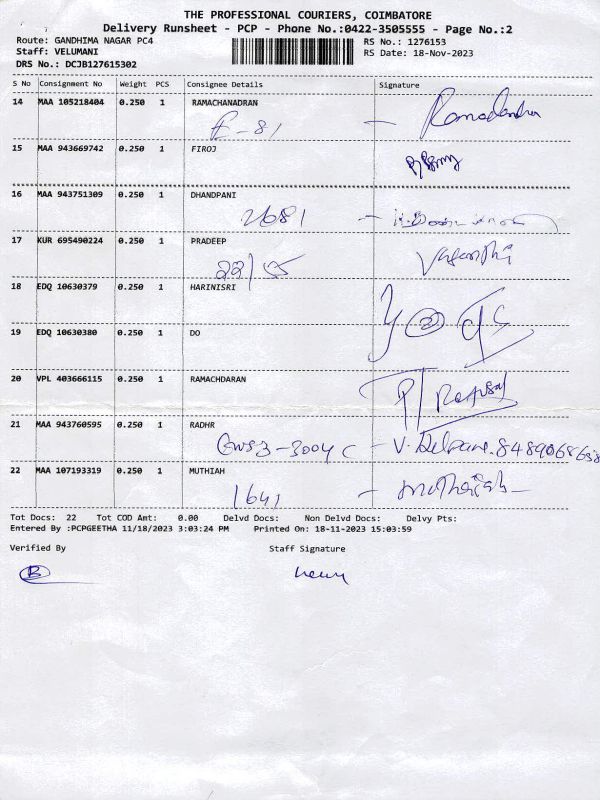 THE PROFESSIONAL COURIERS, COIMBATORE
Delivery Runsheet - PCP - Phone No.:0422-3505555 - Page No.:2
Route: GANDHIMA NAGAR PC4 RS No.: 1276153
Staff: VELUMANI RS Date: 18-Nov-2023
DRS No.: DCJB127615302
S No Consignment No Weight PCS Consignee Details Signature
14 MAA 105218404 0.250 1 RAMACHANADRAN
E-81 -
15 MAA 943669742 0.250 1 FIROJ
16 MAA 943751309 0.250 1 DHANDPANI
2681 -
17 KUR 695490224 0.250 1 PRADEEP
22/55 Vasanthi
18 EDQ 10630379 0.250 1 HARINISRI
19 EDQ 10630380 0.250 1 DO
20 VPL 403666115 0.250 1 RAMACHDARAN
21 MAA 943760595 0.250 1 RADHR
- V.
22 MAA 107193319 0.250 1 MUTHIAH
1641 - muthaiah
Tot Docs: 22 Tot COD Amt: 0.00 Delvd Docs: Non Delvd Docs: Delvy Pts:
Entered By :PCPGEETHA 11/18/2023 3:03:24 PM Printed On: 18-11-2023 15:03:59
Verified By Staff Signature
B